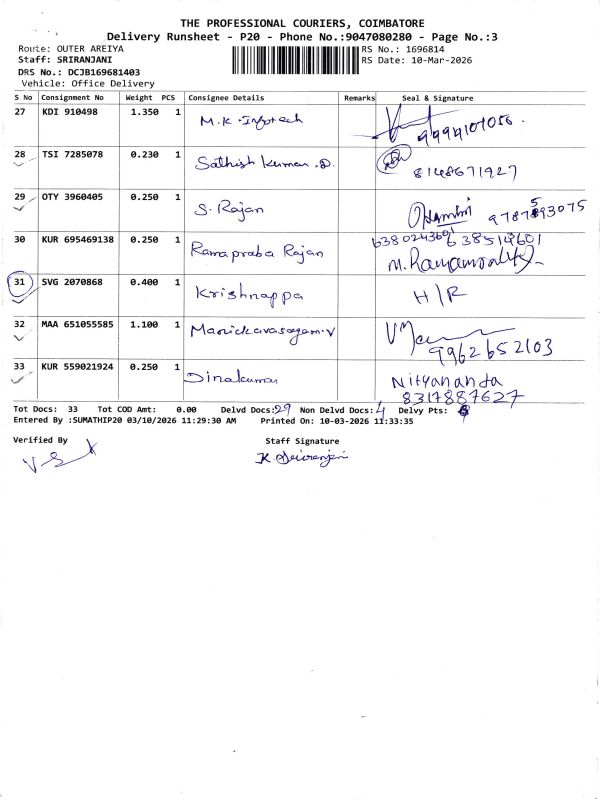 THE PROFESSIONAL COURIERS, COIMBATORE
Delivery Runsheet - P20 - Phone No.:9047080280 - Page No.:3
Route: OUTER AREIYA
RS No.: 1696814
Staff: SRIRANJANI
RS Date: 10-Mar-2026
DRS No.: DCJB169681403
Vehicle: Office Delivery
S No Consignment No Weight PCS Consignee Details Remarks Seal & Signature
27 KDI 910498 1.350 1 M.K. Infotech 9994107056
28 TSI 7285078 0.230 1 Sathish Kumar .D. 8148671927
29 OTY 3960405 0.250 1 S. Rajan
30 KUR 695469138 0.250 1 Ramapraba Rajan
31 SVG 2070868 0.400 1 Krishnappa H/R
32 MAA 651055585 1.100 1 Manickavasagam.V 9962652103
33 KUR 559021924 0.250 1 Dinakumar Nityananda
8317887627
Tot Docs: 33 Tot COD Amt: 0.00 Delvd Docs:29 Non Delvd Docs:4 Delvy Pts:
Entered By :SUMATHIP20 03/10/2026 11:29:30 AM Printed On: 10-03-2026 11:33:35
Verified By Staff Signature